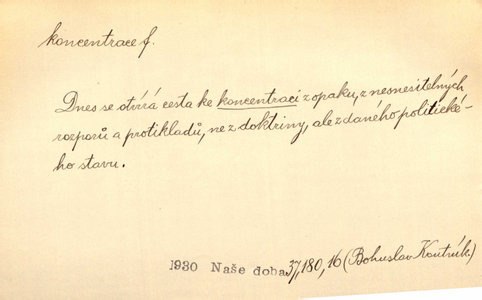 koncentrace f.
Dnes se otvírá cesta ke koncentraci z opaku, z nesnesitelných
rozporů a protikladů, ne z doktriny, ale z daného politické-
ho stavu.
1930 Naše doba 37, 180, 16 (Bohuslav Koutník)